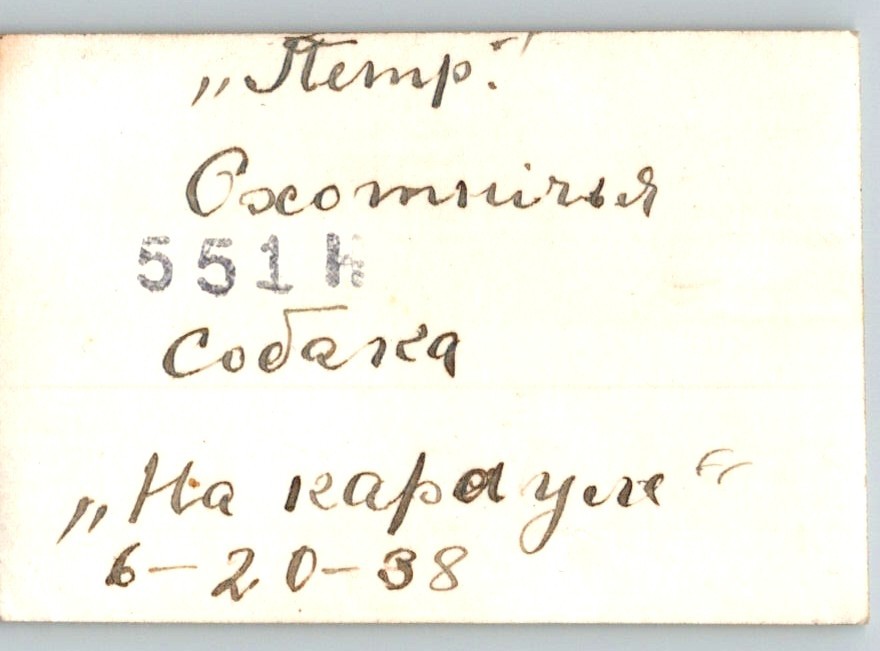 „Петр."
Охотнічья
551 H
собака
„На карауле“
6-20-38